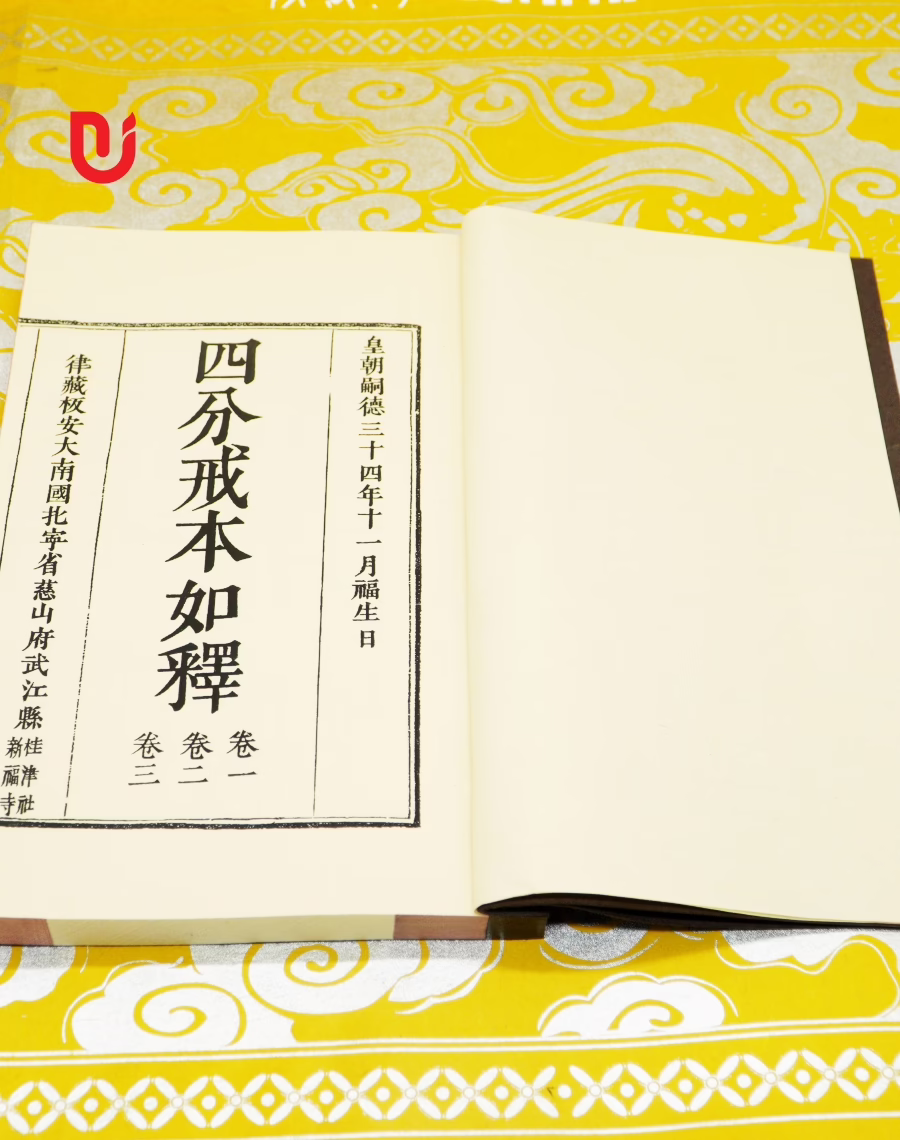 皇朝嗣德三十四年十一月福生日
四分戒本如釋
卷一
卷二
卷三
律藏板安大南國北寧省慈山府武江縣
桂津社
新福寺